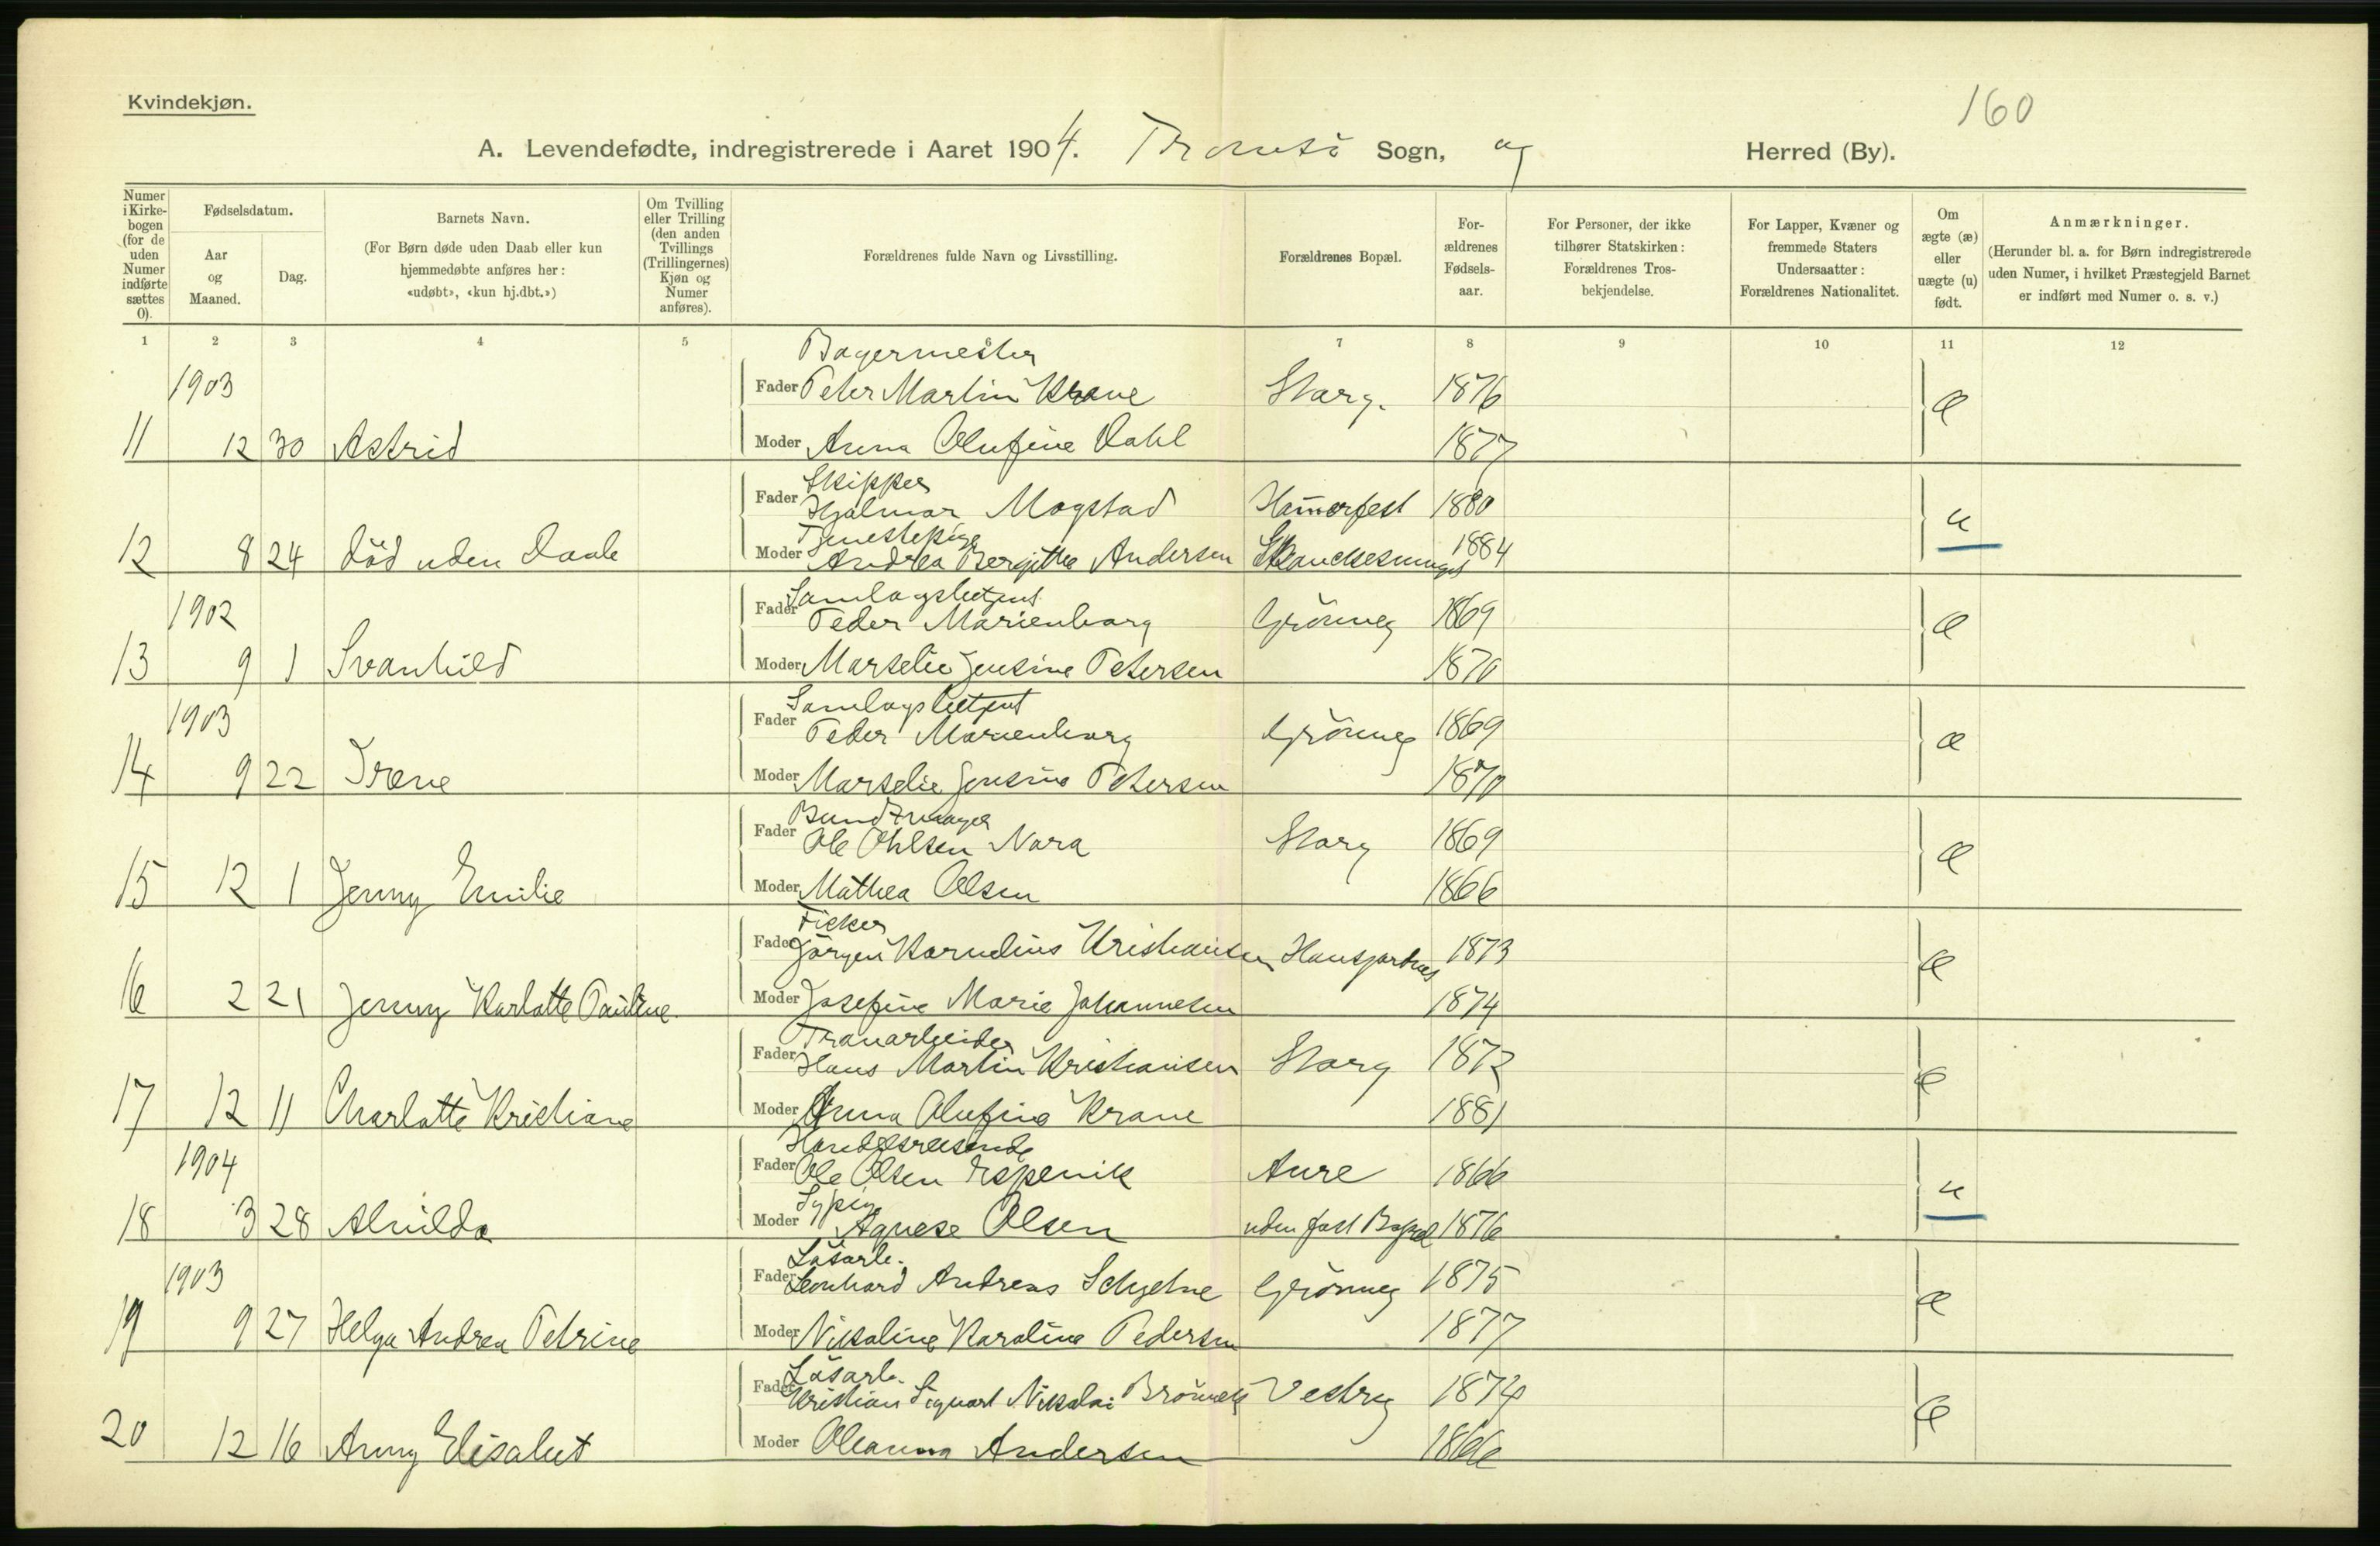 Kvindekjøn.
160
A. Levendefødte, indregistrerede i Aaret 1904. Tromsö Sogn, og Herred (By).
Numer i Kirkebogen (for de uden Numer indførte sættes 0).
Fødselsdatum.
Aar og Maaned.
Dag.
Barnets Navn.
(For Børn døde uden Daab eller kun hjemmedøbte anføres her: «udøbt», «kun hj.dbt.»)
Om Tvilling eller Trilling (den anden Tvillings (Trillingernes) Kjøn og Numer anføres).
Forældrenes fulde Navn og Livsstilling.
Forældrenes Bopæl.
Forældrenes Fødselsaar.
For Personer, der ikke tilhører Statskirken: Forældrenes Trosbekjendelse.
For Lapper, Kvæner og fremmede Staters Undersaatter: Forældrenes Nationalitet.
Om ægte (æ) eller uægte (u) født.
Anmærkninger.
(Herunder bl. a. for Børn indregistrerede uden Numer, i hvilket Præstegjeld Barnet er indført med Numer o. s. v.)
1 2 3 4 5 7 8 9 10 11 12
Bagermester
1903 Fader Peter Martin Krane Storg. 1876 æ
11 12 30 Astrid Moder Anna Olufine Dahl 1877
Skipper
Fader Hjalmar Mogstad Hamerfest 1880 u
Tjenestepige
12 8 24 död uden Daab Moder Andrea Bergitha Andersen 1884
1902 Fader Peder Marienborg Grönneg 1869 æ
13 9 1 Svanhild Moder Marselie Jensine Petersen 1870
1903 Fader Peder Marienborg Grönneg 1869 æ
14 9 22 Irene Moder Marselie Jensine Petersen 1870
Bundtmager
Fader Ole Ohlsen Nora Storg 1869 æ
15 12 1 Jenny Emilie Moder Mathea Olsen 1866
Fisker
Fader Jörgen Kornelius Kristiansen 1873 æ
16 2 21 Jenny Karlotte Pauline Moder Josefine Marie Johannesen 1874
Tranarbeider
Fader Hans Martin Kristiansen Storg 1872 æ
17 12 11 Charlotte Kristiane Moder Anna Olufine Krane 1881
Handelsreisende
1904 Fader Ole Olsen Espenik Aure 1866 u
Sypige
18 3 28 Alvilda Moder Agnese Olsen uden fast Bopæl 1876
Lösarb.
1903 Fader Leonhard Andreas Schjelne Grönneg 1875 æ
19 9 27 Helga Andrea Petrine Moder Nikoline Karoline Pedersen 1877
Lösarb.
Fader Kristian Sigvart Nikolai Vestrg 1874 æ
20 12 16 Anny Elisabet Moder Oleanna Andersen 1866